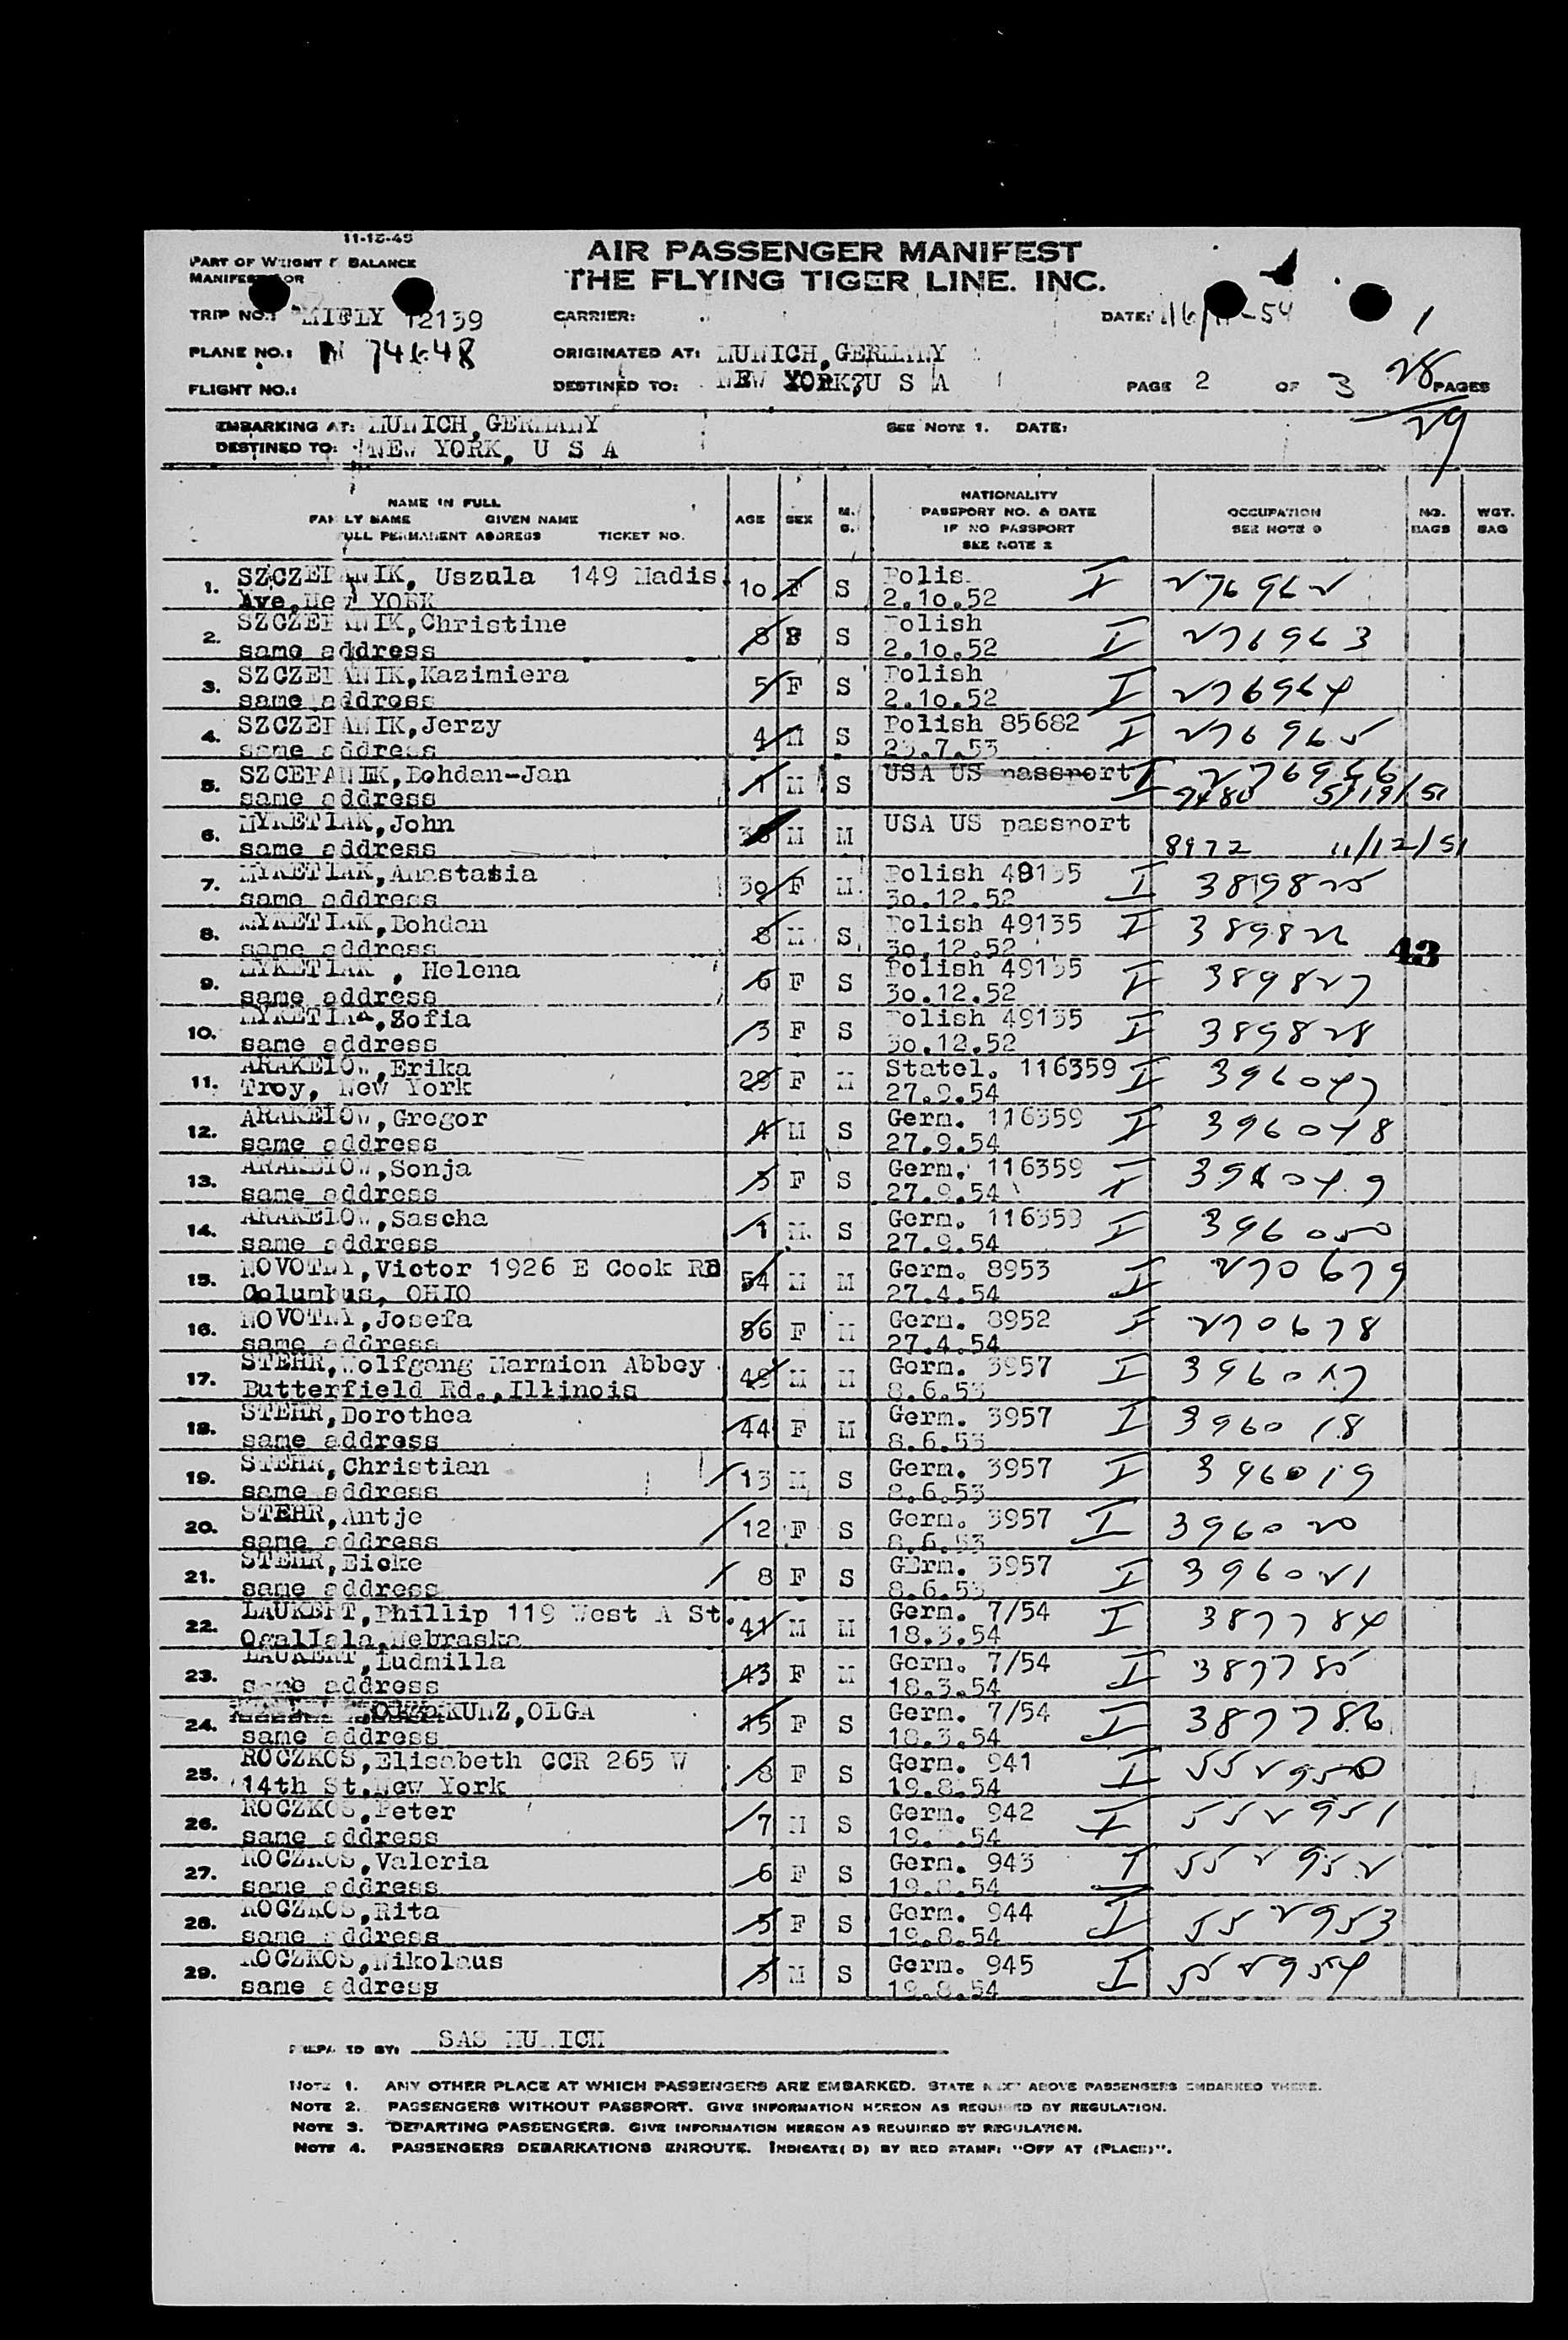 11-15-45
PART OF WEIGHT & BALANCE
MANIFEST FOR
AIR PASSENGER MANIFEST
THE FLYING TIGER LINE. INC.
TRIP NO.: MIFLY 12139
CARRIER:
DATE: 16/11-54
1
PLANE NO.: N 74648
ORIGINATED AT: MUNICH, GERMANY
FLIGHT NO.:
DESTINED TO: NEW YORK, U S A
PAGE 2 OF 3 PAGES
28
29
EMBARKING AT: MUNICH, GERMANY
SEE NOTE 1. DATE:
DESTINED TO: NEW YORK, U S A
NAME IN FULL
FAMILY NAME GIVEN NAME
FULL PERMANENT ADDRESS TICKET NO.
AGE
SEX
M.
S.
NATIONALITY
PASSPORT NO. & DATE
IF NO PASSPORT
SEE NOTE 2
OCCUPATION
SEE NOTE 3
NO.
BAGS
WGT.
BAG
1. SZCZEPANIK, Uszula 149 Madis. 10 F S Polis I 276962
Ave, New YORK 2.10.52
2. SZCZEPANIK,Christine 8 F S Polish I 276963
same address 2.10.52
3. SZCZEPANIK,Kazimiera 5 F S Polish I 276964
same address 2.10.52
4. SZCZEPANIK,Jerzy 4 M S Polish 85682 I 276965
same address 23.7.53
5. SZCEPANIK,Bohdan-Jan 1 M S USA US passport I 276966
same address 9480 5/19/51
6. MYKETIAK,John M M USA US passport
same address 8972 11/12/51
7. MYKETIAK,Anastasia 30 F M Polish 49135 I 389825
same address 30.12.52
8. MYKETIAK,Bohdan 8 M S Polish 49135 I 389826
same address 30.12.52
43
9. MYKETIAK , Helena 6 F S Polish 49135 I 389827
same address 30.12.52
10. MYKETIAK,Sofia 3 F S Polish 49135 I 389828
same address 30.12.52
11. ARAKELOW,Erika 29 F M Statel. 116359 I 396047
Troy, New York 27.9.54
12. ARAKELOW,Gregor 4 M S Germ. 116359 I 396048
same address 27.9.54
13. ARAKELOW,Sonja 3 F S Germ. 116359 I 396049
same address 27.9.54
14. ARAKELOW,Sascha 1 M S Germ. 116359 I 396050
same address 27.9.54
15. NOVOTNY,Victor 1926 E Cook RD 54 M M Germ. 8953 I 270679
Columbus, OHIO 27.4.54
16. NOVOTNY,Josefa 56 F M Germ. 8952 I 270678
same address 27.4.54
17. STEHR,Wolfgang Marmion Abbey 49 M M Germ. 3957 I 396017
Butterfield Rd.,Illinois 8.6.53
18. STEHR,Dorothea 44 F M Germ. 3957 I 396018
same address 8.6.53
19. STEHR,Christian 13 M S Germ. 3957 I 396019
same address 8.6.53
20. STEHR,Antje 12 F S Germ. 3957 I 396020
same address 8.6.53
21. STEHR,Eicke 8 F S GErm. 3957 I 396021
same address 8.6.53
22. LAUKERT,Phillip 119 West A St. 41 M M Germ. 7/54 I 387784
Ogallala,Nebraska 18.3.54
23. LAUKERT,Ludmilla 43 F M Germ. 7/54 I 387785
same address 18.3.54
24. KUNZ,OLGA 15 F S Germ. 7/54 I 387786
same address 18.3.54
25. ROCZKOS,Elisabeth CCR 265 W 8 F S Germ. 941 I 552950
14th St.New York 19.8.54
26. ROCZKOS,Peter 7 M S Germ. 942 I 552951
same address 19.8.54
27. ROCZKOS,Valeria 6 F S Germ. 943 I 552952
same address 19.8.54
28. ROCZKOS,Rita 5 F S Germ. 944 I 552953
same address 19.8.54
29. ROCZKOS,Nikolaus 3 M S Germ. 945 I 552954
same address 19.8.54
PREPARED BY: SAS MUNICH
NOTE 1. ANY OTHER PLACE AT WHICH PASSENGERS ARE EMBARKED. STATE NEXT ABOVE PASSENGERS EMBARKED THERE.
NOTE 2. PASSENGERS WITHOUT PASSPORT. GIVE INFORMATION HEREON AS REQUIRED BY REGULATION.
NOTE 3. DEPARTING PASSENGERS. GIVE INFORMATION HEREON AS REQUIRED BY REGULATION.
NOTE 4. PASSENGERS DEBARKATIONS ENROUTE. INDICATE(D) BY RED STAMP: "OFF AT (PLACE)".